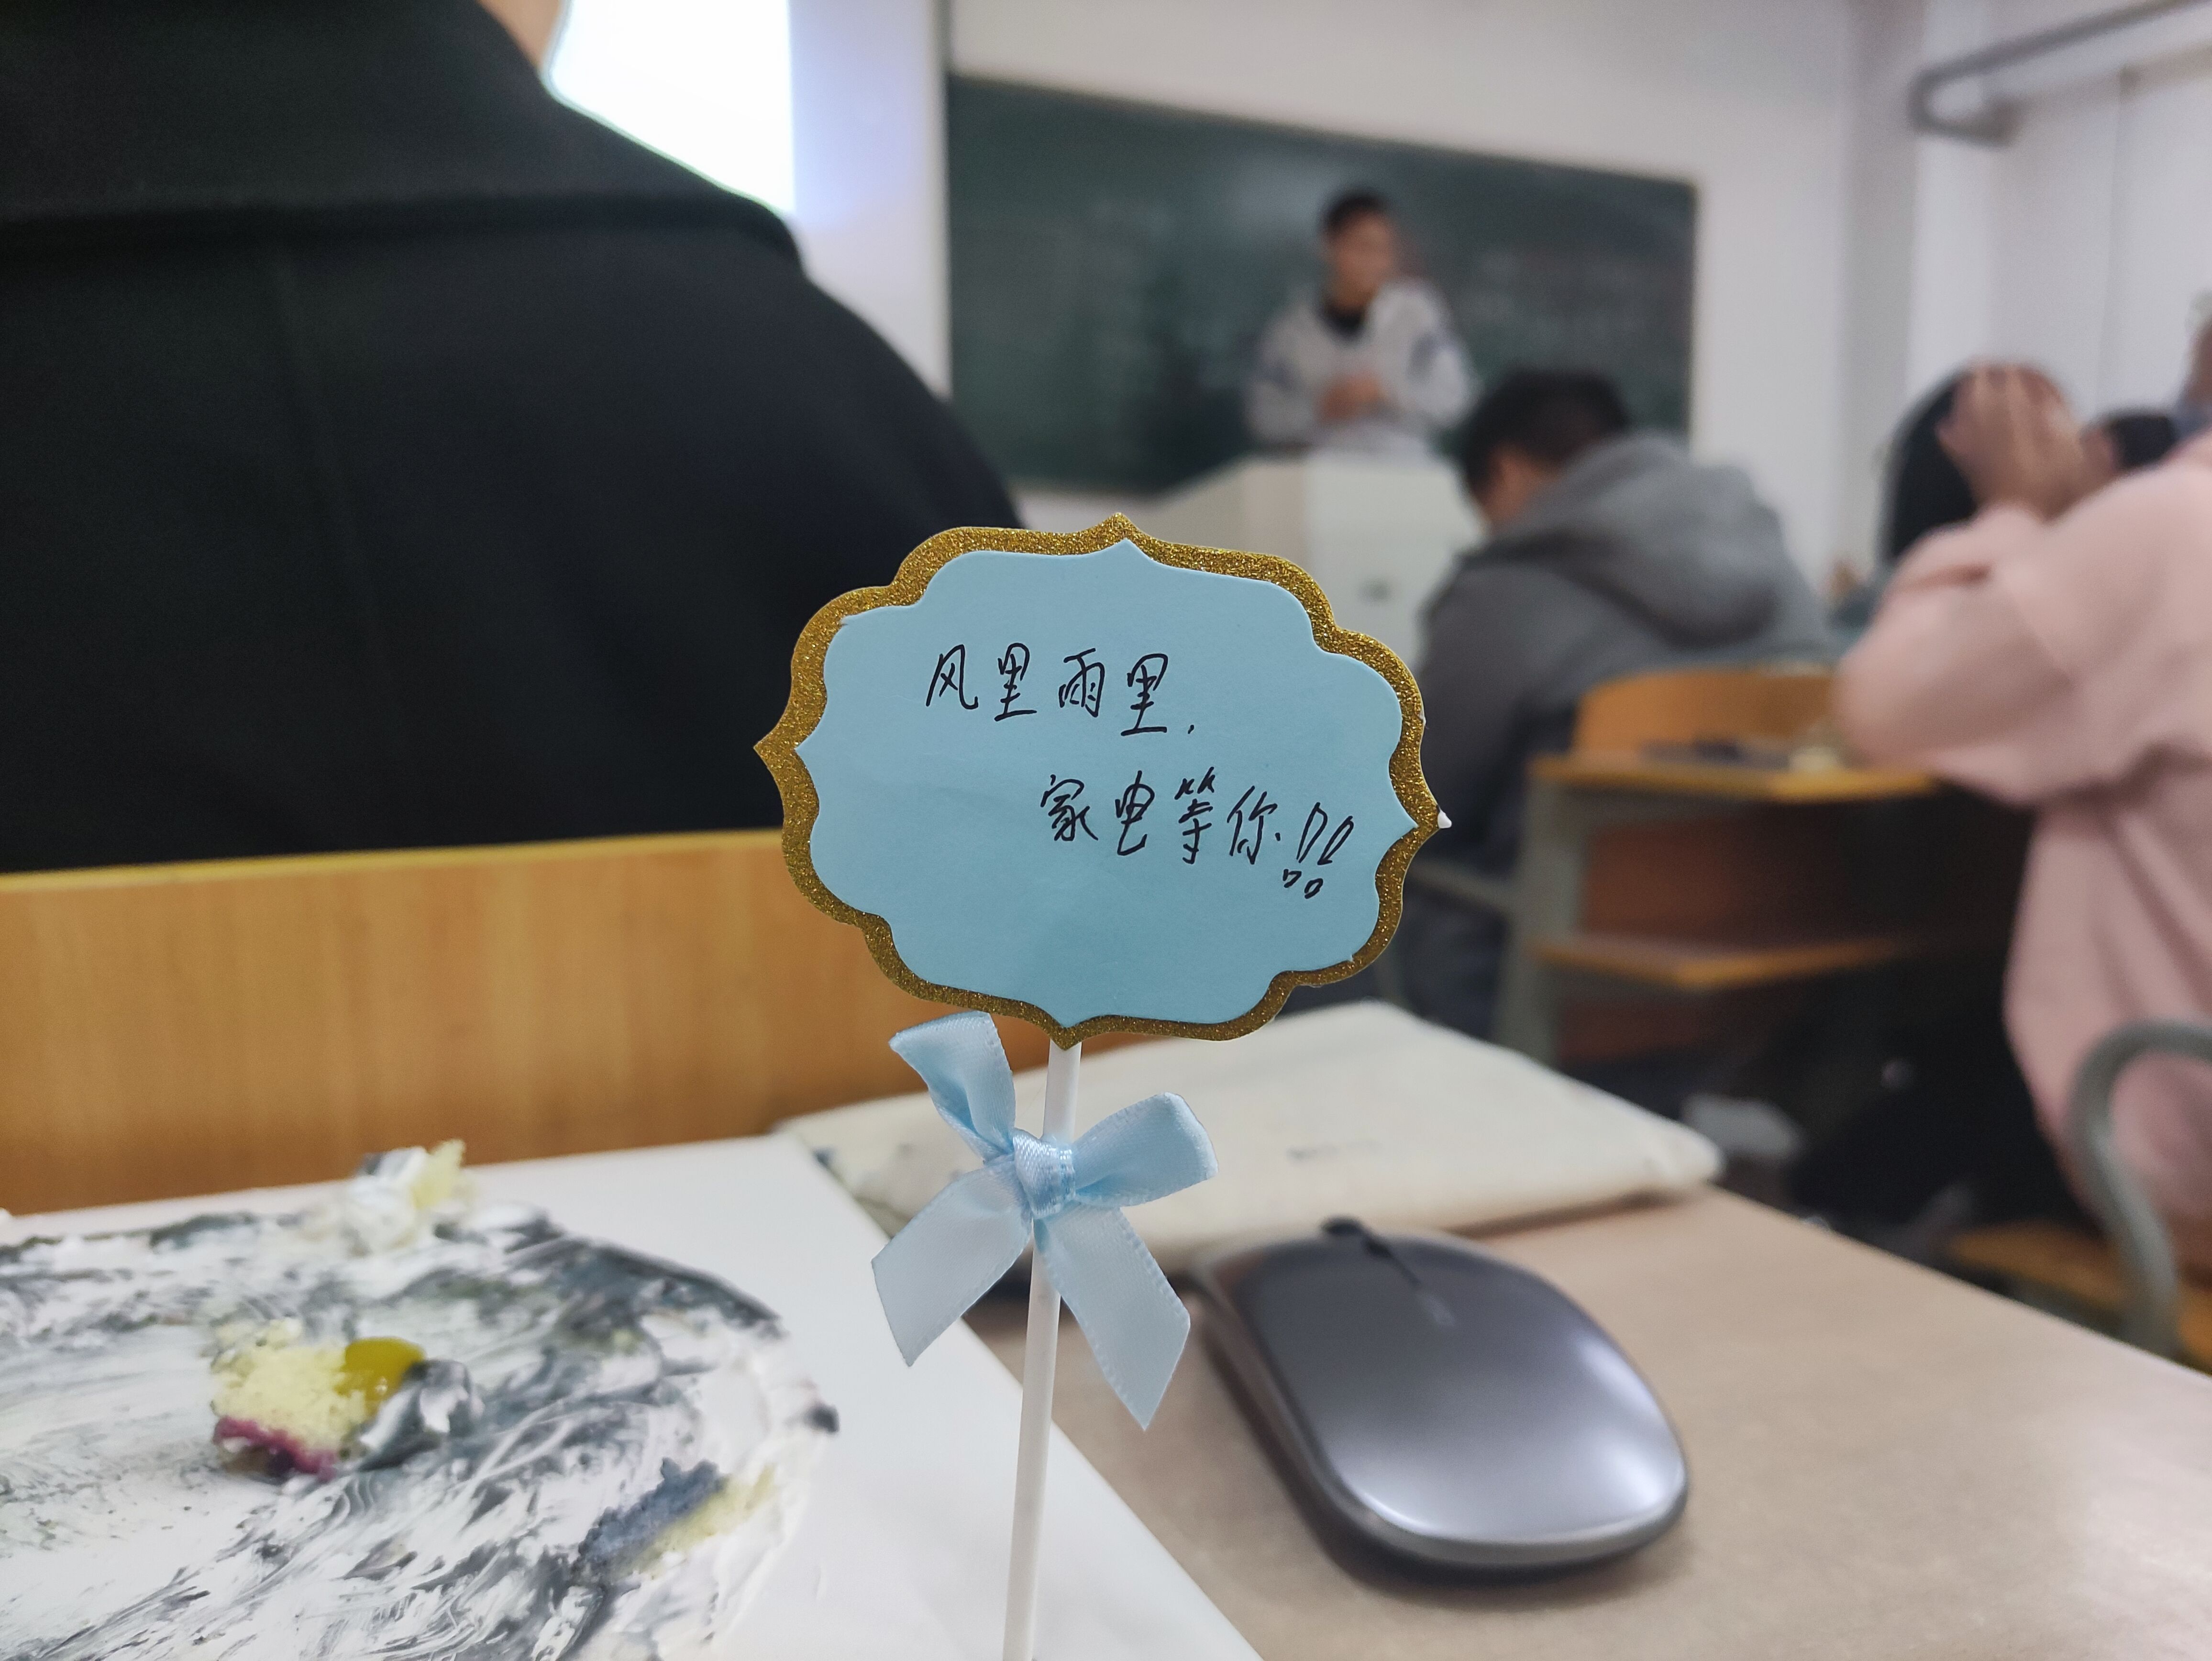 风里雨里，
家电等你!!